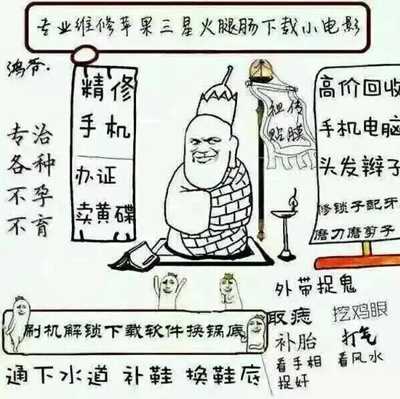 专业维修苹果三星火腿肠下载小电影
鸿爷.
精修
手机
办证
卖黄碟
祖传
贴膜
高价回收
手机电脑
头发辫子
修锁子配牙
磨刀磨剪子
专治
各种
不孕
不育
外带捉鬼
取痣
挖鸡眼
补胎
打气
看手相
看风水
捉奸
刷机解锁下载软件换锅底
通下水道 补鞋 换鞋底